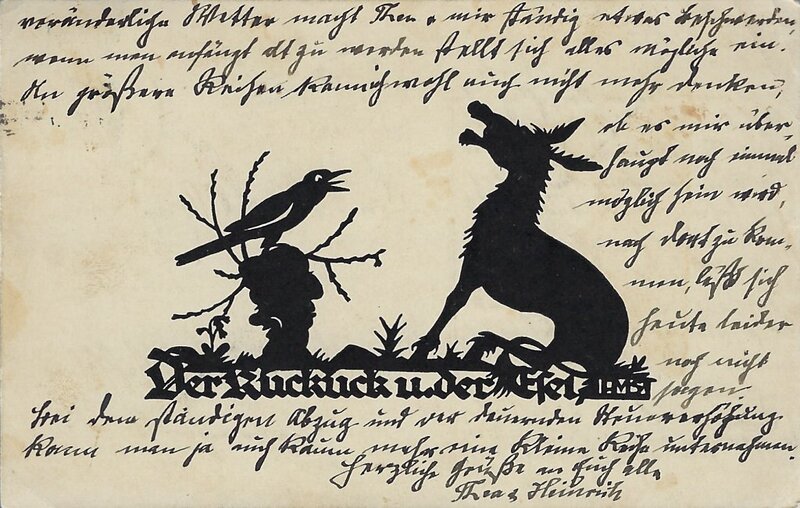 veränderliche Wetter macht Thea u mir ständig etwas Beschwerden,
wenn man anfängt alt zu werden stellt sich alles mögliche ein.
An größere Reisen kann ich wohl auch nicht mehr denken,
ob es mir über-
haupt noch einmal
möglich sein wird,
nach dort zu kom-
men, läßt sich
heute leider
noch nicht
sagen.
Der Kuckuck u. der Esel
Bei dem ständigen Abzug und der dauernden Steuererhöhung
kann man ja auch kaum mehr eine kleine Reise unternehmen.
Herzliche Grüße an Euch alle
Thea & Heinrich